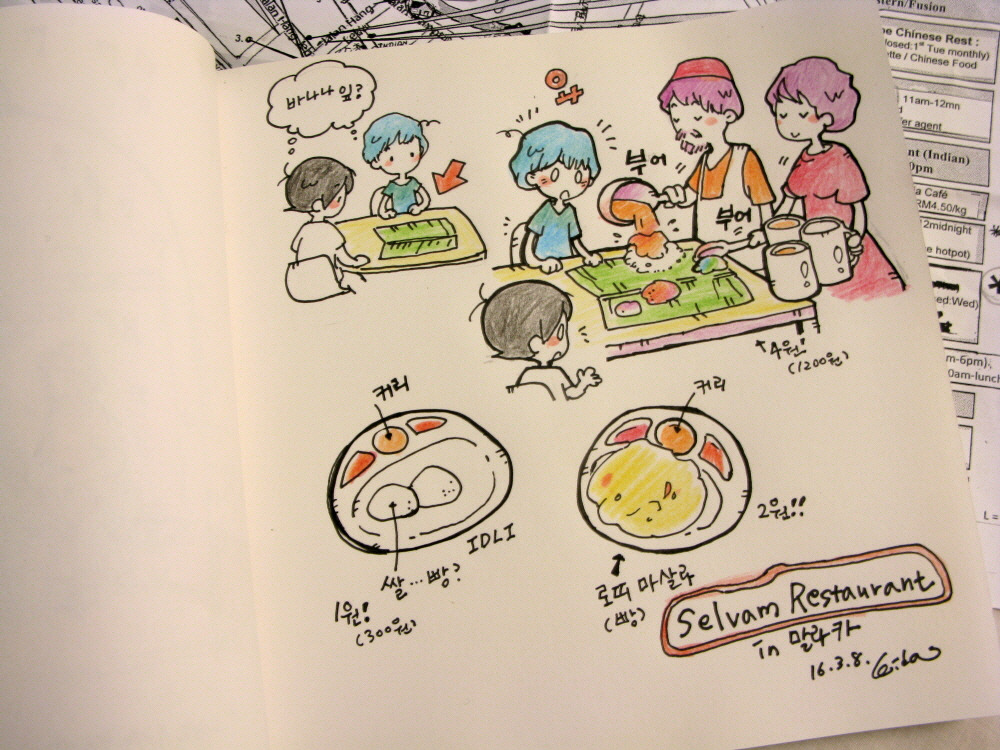 3.
stern/Fusion
pe Chinese Rest :
losed:1st Tue monthly)
ette / Chinese Food
11am-12mn
fer agent
nt (Indian)
0pm
a Café
RM4.50/kg
2midnight
e hotpot)
ed:Wed)
m-6pm)
0am-lunch
L =
바나나 잎?
우
부어
부어
4원!
(1200원)
커리
커리
IDLI
쌀...빵?
1원!
(300원)
2원!!
로띠 마살라
(빵)
Selvam Restaurant
in 말라카
16.3.8.